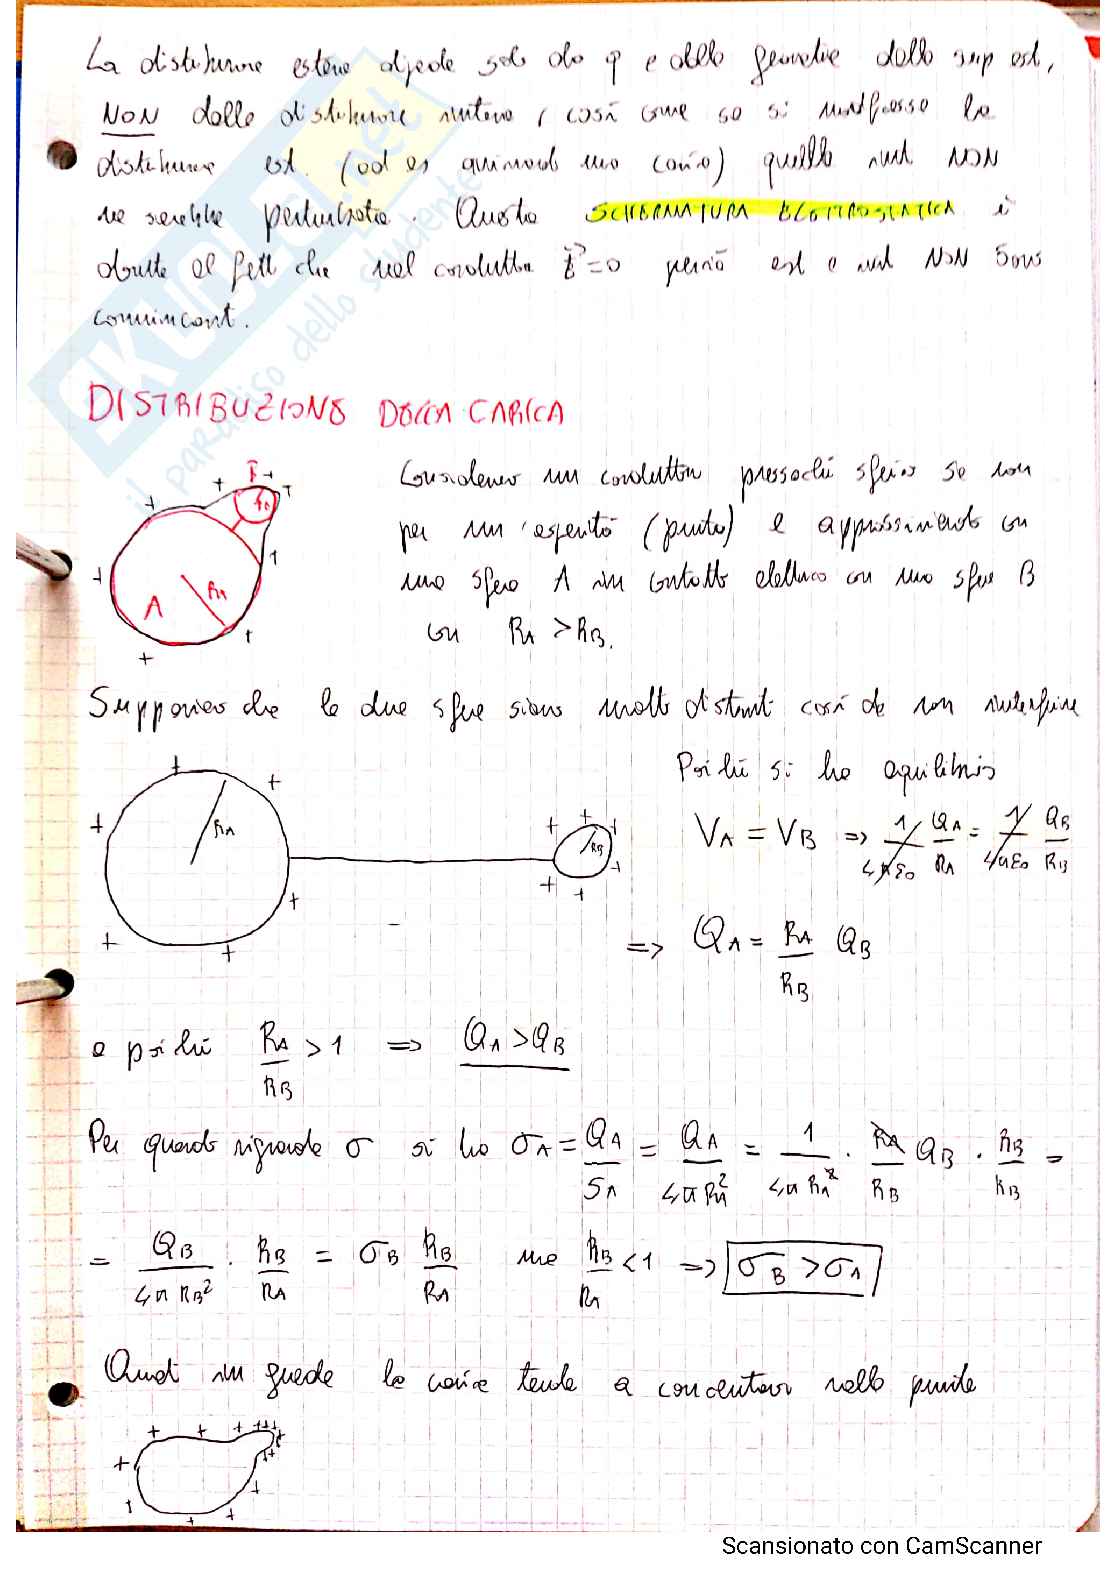 La distribuzione esterna dipende solo da q e dalla geometria della sup est,
NON dalla distribuzione interna, così come se si modificasse la
distribuzione est. (ad es avvicinando una carica) quella int. NON
ne sarebbe perturbata. Questa SCHERMATURA ELETTROSTATICA è
dovuta al fatto che nel conduttore E⃗=0 perciò est e int NON sono
comunicanti.
DISTRIBUZIONE DELLA CARICA
Consideriamo un conduttore pressoché sferico se non
per un'asperità (punta) e approssimiamolo con
una sfera A in contatto elettrico con una sfera B
con RA > RB.
A RA
Supponiamo che le due sfere siano molto distanti così da non interferire
Poiché si ha equilibrio
RA RB
VA = VB => 1/4πε0 QA/RA = 1/4πε0 QB/RB
=> QA = RA/RB QB
e poiché RA/RB > 1 => QA > QB
Per quanto riguarda σ si ha σA = QA/SA = QA/4πRA² = 1/4πRA² · RA/RB QB · RB/RB =
= QB/4πRB² · RB/RA = σB RB/RA ma RB/RA < 1 => σB > σA
Quindi in generale la carica tende a concentrarsi nelle punte
SKUOLA.net
il paradiso dello studente
Scansionato con CamScanner